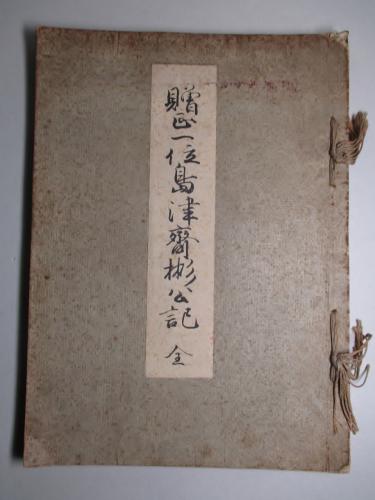 贈正一位島津齊彬公記 全